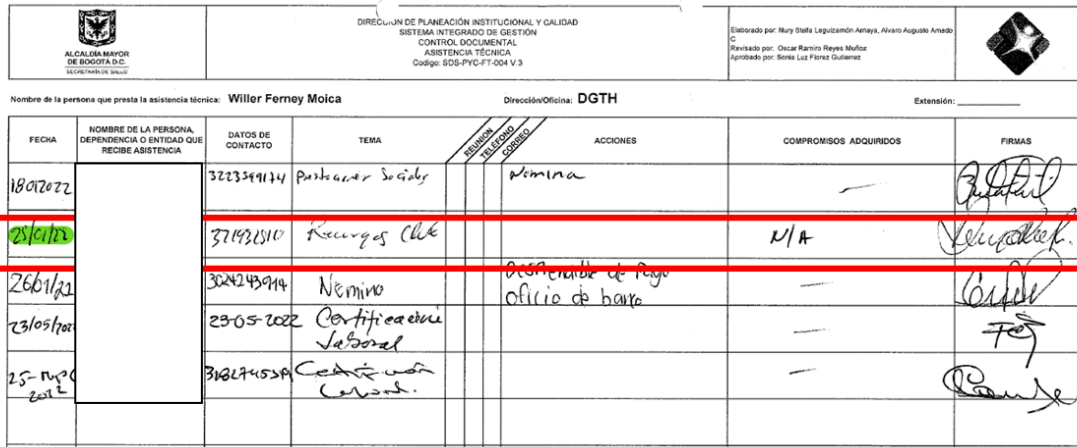 ALCALDÍA MAYOR
DE BOGOTÁ D.C.
SECRETARÍA DE SALUD
DIRECCIÓN DE PLANEACIÓN INSTITUCIONAL Y CALIDAD
SISTEMA INTEGRADO DE GESTIÓN
CONTROL DOCUMENTAL
ASISTENCIA TÉCNICA
Codigo: SDS-PYC-FT-004 V.3
Elaborado por: Nury Stella Leguizamón Amaya, Alvaro Augusto Amado
C
Revisado por: Oscar Ramiro Reyes Muñoz
Aprobado por: Sonia Luz Florez Gutierrez
Nombre de la persona que presta la asistencia técnica: Willer Ferney Moica
Dirección/Oficina: DGTH
Extensión:
FECHA
NOMBRE DE LA PERSONA,
DEPENDENCIA O ENTIDAD QUE
RECIBE ASISTENCIA
DATOS DE
CONTACTO
TEMA
REUNION
TELÉFONO
CORREO
ACCIONES
COMPROMISOS ADQUIRIDOS
FIRMAS
18012022 Sociales Nomina
25/01/22 N/A
26/01/22 3024243914 Nomina de Pago
oficio de barro
23/05/202 23-05-2022
Laboral
25-
2022